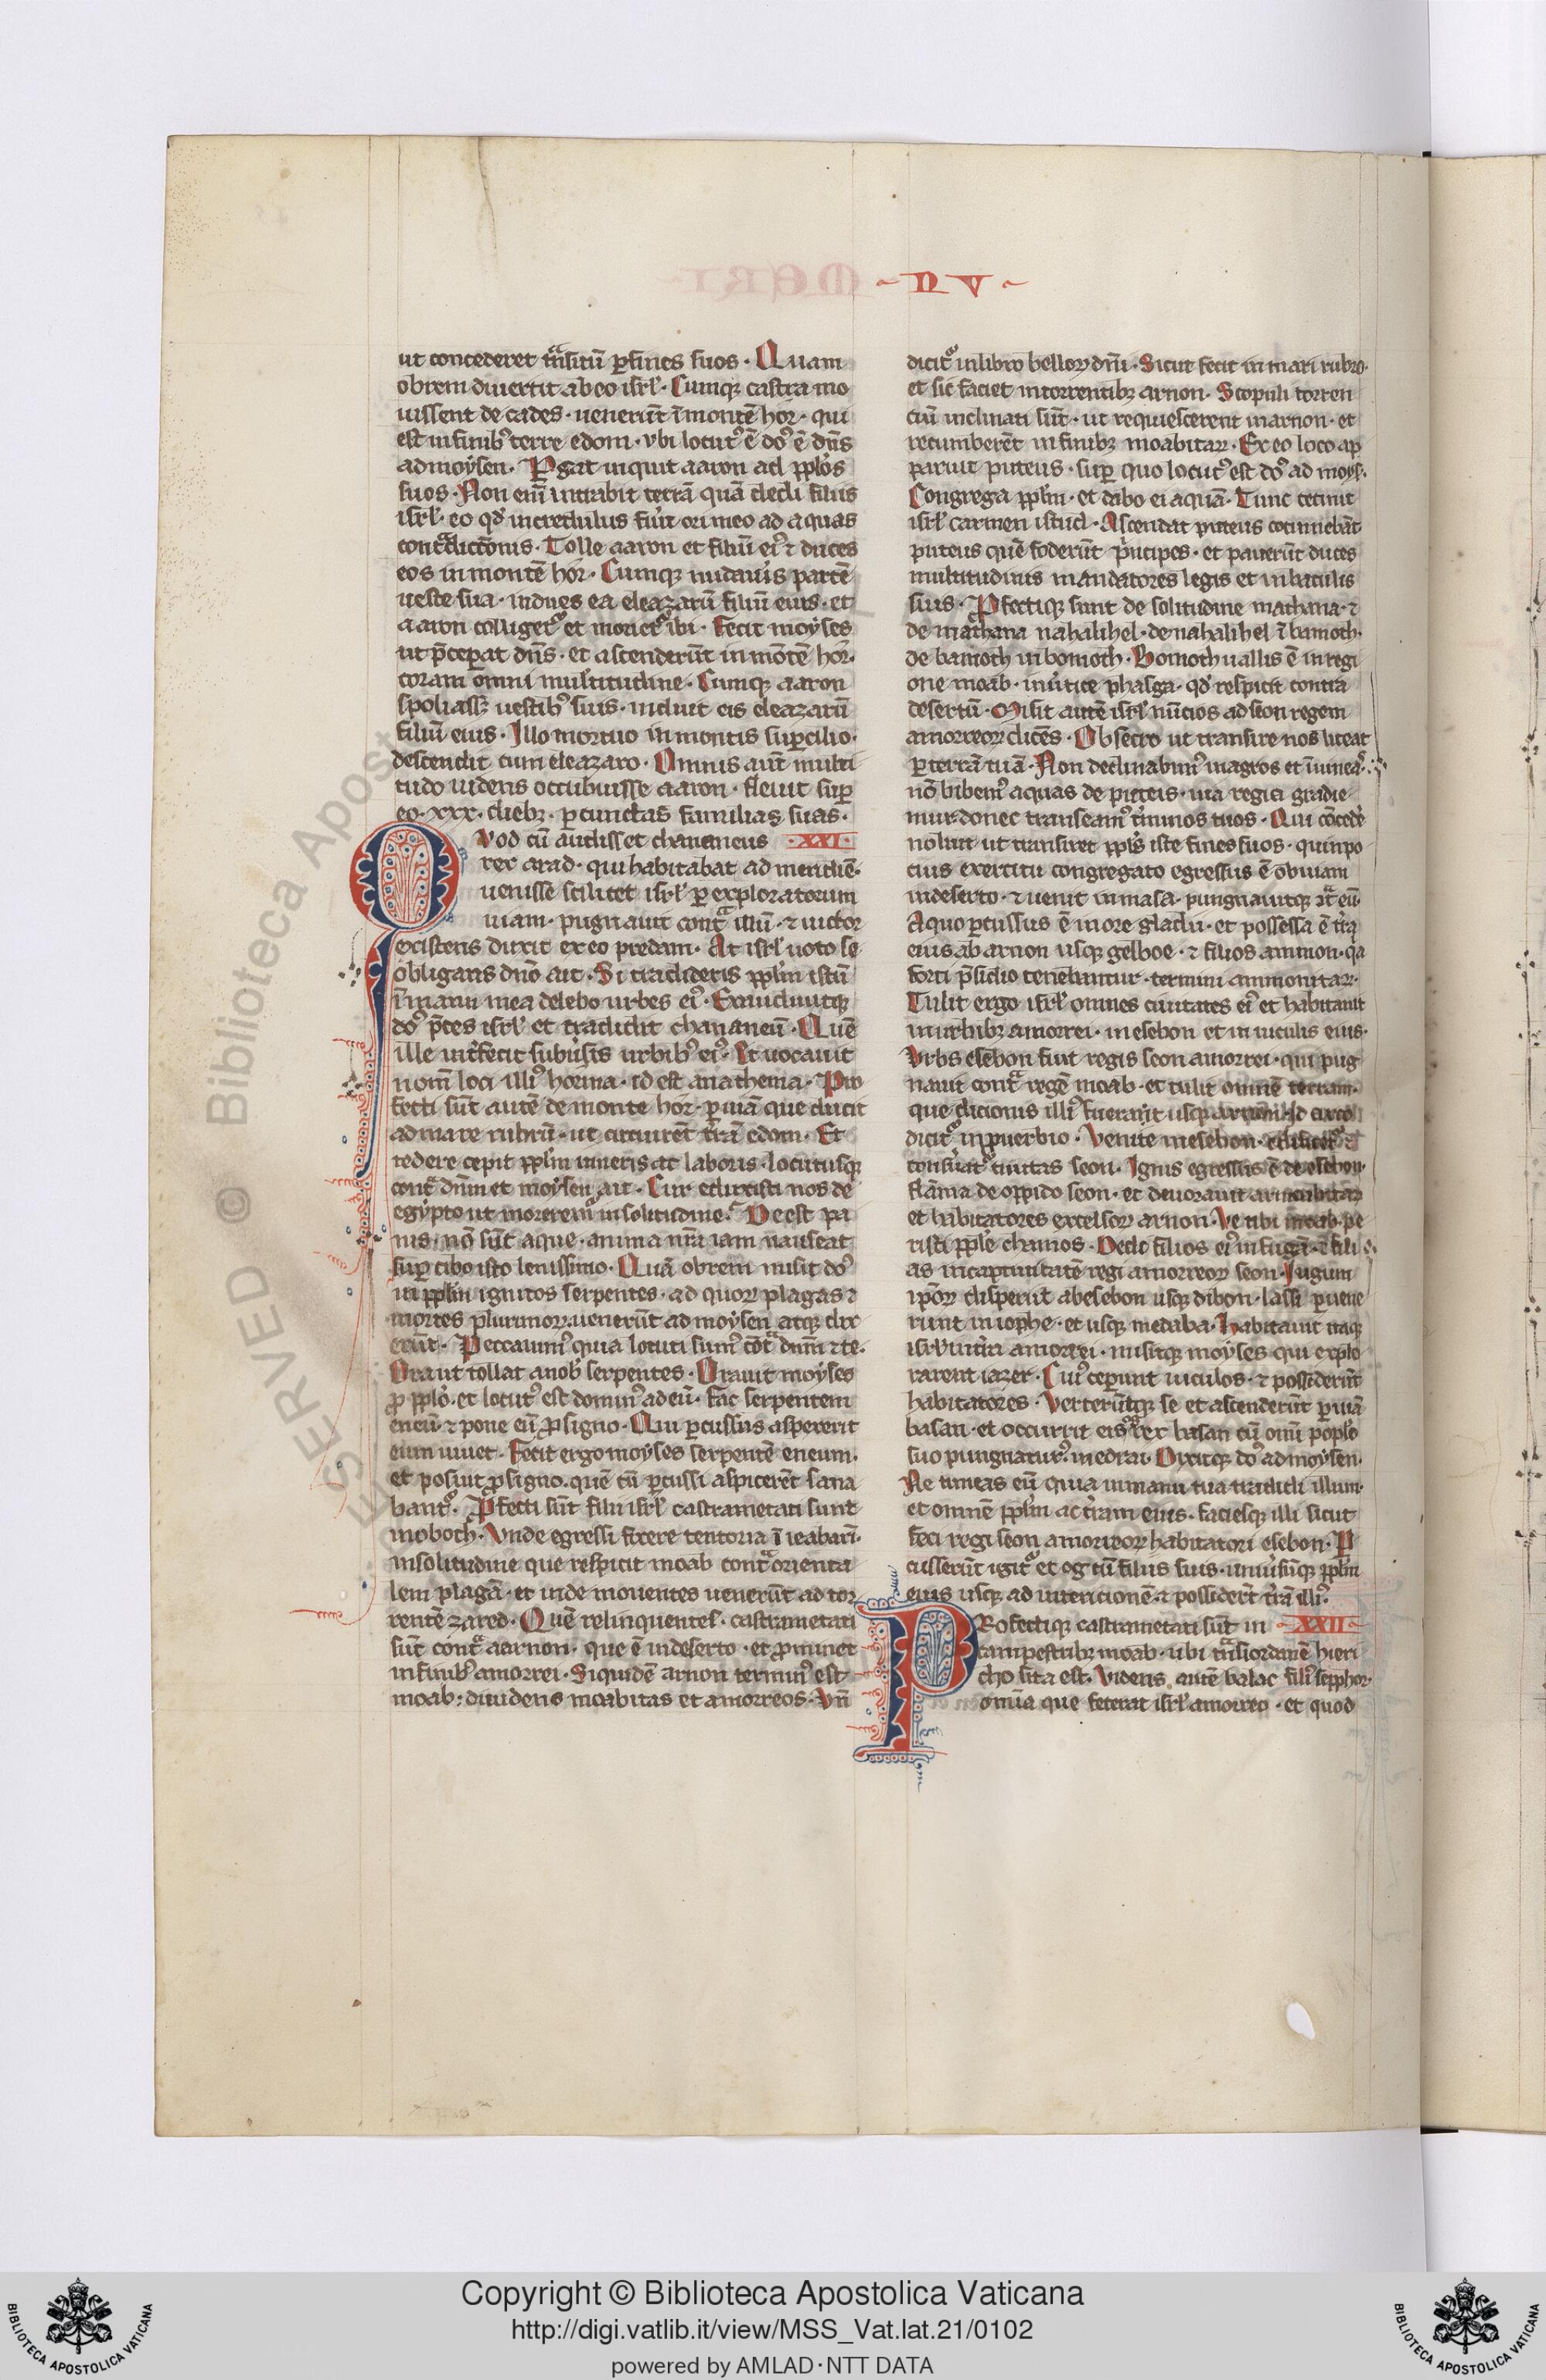 NV
ut concederet tͣnsitū ꝑ fines suos · Quam
obrem diuertit ab eo isrl̓ · Cumqꝫ castra mo
uissent de cades · uenerūt ī montē hor · qui
est in finibꝰ terre edom · vbi locutꝰ ē dōꝰ ē dn̄s
ad moysen · Pergat inquit aaron ad pplōs
suos · Non enī intrabit terrā quā dedi filiis
isrl̓ · eo qd̓ incredulus fuit ori meo ad aquas
contͣdictōnis · Tolle aaron et filiū eiꝰ ⁊ duces
eos in montē hor · Cumqꝫ nudaūis partē
ueste sua · indues ea eleazarū filiū eius · et
aaron colligetᷣ et morietᷣ ibi · Fecit moyses
ut p̄ceꝑat dn̄s · et ascenderūt in mōtē hor ·
coram omni multitudine · Cumqꝫ aaron
spoliassꝫ uestibꝰ suis · induit eis eleazarū
filiū eius · Illo mortuo in montis suꝑcilio ·
descendit cum eleazaro · Omnis aūt multi
tudo uidens occubuisse aaron · fleuit suꝑ
eo · xxx · diebꝫ · ꝑ cunctas familias suas ·
Quod cū audisset chananeus · XXI ·
rex arad · qui habitabat ad meridiē ·
uenisse scilicet isrl̓ ꝑ exploratorum
uiam · pugnauit contͣ illū · ⁊ uictor
existens duxit ex eo predam · At isrl̓ uoto se
obligans dn̄o ait · Si tradideris ppl̄m istū
ī manu mea delebo urbes eiꝰ · Exaudiuitqꝫ
dōꝰ p̄ces isrl̓ et tradidit chananeū · Quē
ille int̓fecit subūsis urbibꝰ eiꝰ · Et uocauit
nom̄ loci illiꝰ horma · id est anathema · Pro
fecti sūt autē de monte hor · ꝑ uiā que ducit
ad mare rubrū · ut circuirēt t̓rā edom · Et
tedere cepit ppl̄m itineris ac laboris · locutusqꝫ
contͣ dn̄m et moysen ait · Cur eduxisti nos de
egypto ut moreremᷣ in solitudine · Deest pa
nis · nō sūt aque · anima nr̄a iam nauseat
suꝑ cibo isto leuissimo · Quā obrem misit dōꝰ
in ppl̄m ignitos serpentes · ad quoꝝ plagas ⁊
mortes plurimoꝝ · uenerūt ad moysen atqꝫ dix
erūt · Peccauimꝰ quia locuti sumꝰ cōtͣ dn̄m ⁊ te ·
Ora ut tollat a nob̓ serpentes · Orauit moyses
ꝓ pplo · et locutꝰ est dominꝰ ad eū · fac serpentem
eneū · ⁊ pone eū ꝓ signo · Qui ꝑcussus aspexerit
eum uiuet · Fecit ergo moyses serpentē eneum ·
et posuit ꝓ signo · quē cū ꝑcussi aspicerēt sana
bantᷣ · Ꝓfecti sūt filii isrl̓ castrametati sunt
in oboth · Vnde egressi fixere tentoria ī ieabarī ·
in solitudine que respicit moab contͣ orienta
lem plagā · et inde mouentes uenerūt ad tor
rentē zared · Quē relinquentes · castrametati
sūt contͣ aarnon · que ē in deserto · et ꝓminet
in finibꝰ amorrei · Siquidē arnon terminꝰ est
moab · diuidens moabitas et amorreos · Vn̄
dicitᷣ in libro belloꝝ dn̄i · Sicut fecit in mari rubro ·
et sic faciet in torrentibꝫ arnon · Scopuli torren
ciū inclinati sūt · ut requiescerent in arnon · et
recumberēt in finibꝫ moabitaꝝ · Ex eo loco ap
paruit puteus · suꝑ quo locutꝰ est dōꝰ ad moys̄ ·
Congrega ppl̄m · et dabo ei aquā · Tunc cecinit
isrl̓ carmen istud · Ascendat puteus cōcinebāt
puteus quē foderūt p̓ncipes · et parauerūt duces
multitudinis in andatores legis et in baculis
suis · Ꝓfectiqꝫ sunt de solitudine mathana · ⁊
de mathana nahalihel · de nahalihel ī bamoth ·
de bamoth in bomoth · Bomoth uallis ē in regi
one moab · in u̓tice phasga · qd̓ respicit contra
desertū · Misit autē isrl̓ nūcios ad seon regem
amorreoꝝ dicēs · Obsecro ut transire nos liceat
ꝑ terrā tuā · Non declinabimꝰ in agros et ī uineaᷤ ·
nō bibemꝰ aquas de puteis · uia regia gradie
mur · donec transeamꝰ t̓minos tuos · Qui cōcede̓
noluit ut transiret ppl̄s iste fines suos · quin po
cius exercitu congregato egressus ē obuiam
in deserto · ⁊ uenit in iasa · pungnauitqꝫ ↄtͣ eū ·
A quo ꝑcussus ē in ore gladii · et possessa ē t̓ra
eius ab arnon usqꝫ gelboe · ⁊ filios ammon · qa
forti p̄sidio tenebantur · termini ammonitaꝝ ·
Tulit ergo isrl̓ omnes ciuitates eiꝰ et habitauit
in urbibꝫ amorrei · in esebon et in uiculis eius ·
Vrbs esebon fuit regis seon amorrei · qui pug
nauit contͣ regē moab · et tulit omnē terram ·
que dicionis illiꝰ fuerant usqꝫ arnon · Idcirco
dicitᷣ in ꝓuerbio · Venite in esebon · edificetᷣ ⁊
construatᷣ ciuitas seon · Ignis egressus ē de esebon ·
flāma de oppido seon · et deuorauit ar moabitaꝝ
et habitatores excelsoꝝ arnon · Ve tibi moab · pe
risti pple chamos · Dedit filios eiꝰ in fugā · ⁊ fili
as in captiuitatē regi amorreoꝝ seon · Iugum
ipōꝝ disperiit ab esebon usqꝫ dibon · lassi ꝑuene
runt in iophe · et usqꝫ medaba · Habitauit itaqꝫ
isrl̓ in t̓ra amorrei · misitqꝫ moyses qui explo
rarent iazer · Cuiꝰ ceperunt uiculos · ⁊ possiderūt
habitatores · Verterūtqꝫ se et ascenderūt ꝑ uiā
basan · et occurrit eis og rex basan cū omī poplo
suo pungnaturꝰ in edrai · Dixitqꝫ dōꝰ ad moysen ·
Ne timeas eū quia in manu tua tradidi illum ·
et omnē ppl̄m ac t̓ram eius · faciesqꝫ illi sicut
feci regi seon amorreoꝝ habitatori esebon · Ꝑ
cusserūt igitᷣ et og cū filiis suis · uniu̓sūqꝫ ppl̄m
eius usqꝫ ad int̓ncionē · ⁊ possederūt t̓rā illiꝰ ·
Profectiqꝫ castrametati sūt in · XXII ·
campestribꝫ moab · ubi tͣns iordanē hieri
cho sita est · Videns autē balac filiꝰ sepphor ·
omnia que fecerat isrl̓ amorreo · et quod
RESERVED © Biblioteca Apost
Copyright © Biblioteca Apostolica Vaticana
http://digi.vatlib.it/view/MSS_Vat.lat.21/0102
powered by AMLAD·NTT DATA
BIBLIOTECA APOSTOLICA VATICANA
BIBLIOTECA APOSTOLICA VATICANA